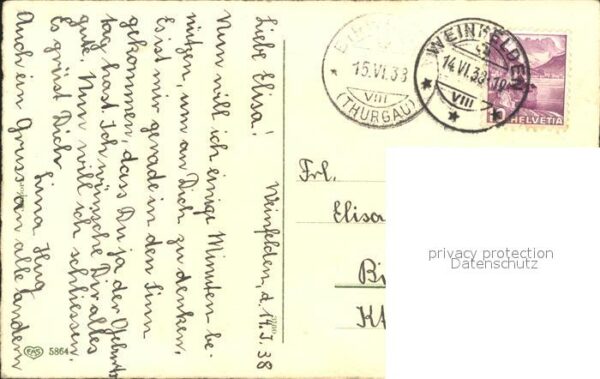 Weinfelden, d. 14. I. 38
Liebe Elisa!
Nun will ich einige Minuten be-
nützen, um an Dich zu denken.
Es ist mir gerade in den Sinn
gekommen, dass Du ja der Geburts-
tag hast. Ich wünsche Dir alles
gute. Nun will ich schliessen.
Es grüst Dich
Lina Hug
Auch ein Gruss an alle andern
EAS 5864
15.VI.38
VIII
(THURGAU)
WEINFELDEN
14.VI.38
VIII
HELVETIA
Frl.
Elisa
Bi
Kt
privacy protection
Datenschutz